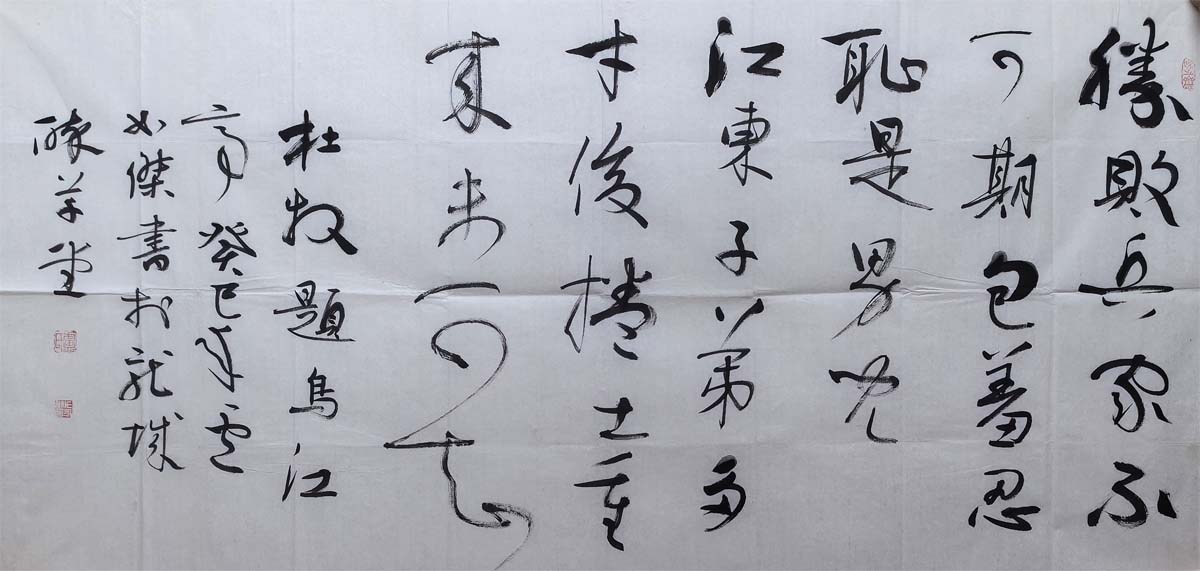 勝敗兵家不
可期包羞忍
恥是男兒
江東子弟多
才俊捲土重
来未可知
杜牧題烏江
亭癸巳年
傑書於龍城
草堂